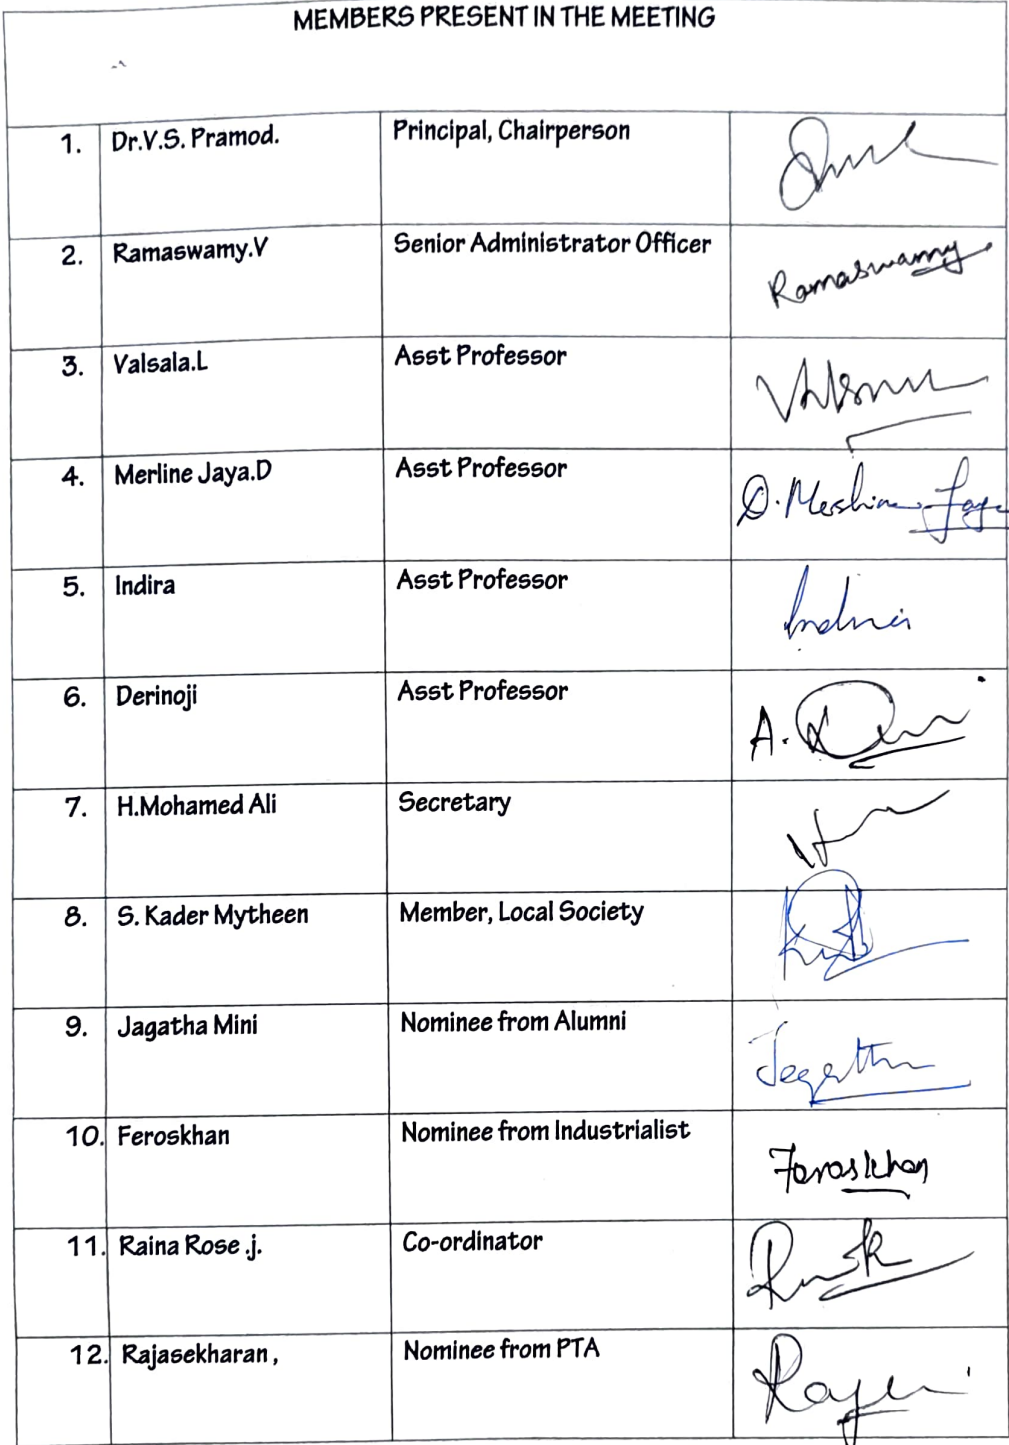 MEMBERS PRESENT IN THE MEETING
1. Dr.V.S. Pramod. Principal, Chairperson
2. Ramaswamy.V Senior Administrator Officer Ramaswamy
3. Valsala.L Asst Professor
4. Merline Jaya.D Asst Professor
5. Indira Asst Professor Indira
6. Derinoji Asst Professor
7. H.Mohamed Ali Secretary
8. S. Kader Mytheen Member, Local Society
9. Jagatha Mini Nominee from Alumni
10. Feroskhan Nominee from Industrialist
11. Raina Rose .j. Co-ordinator
12. Rajasekharan , Nominee from PTA